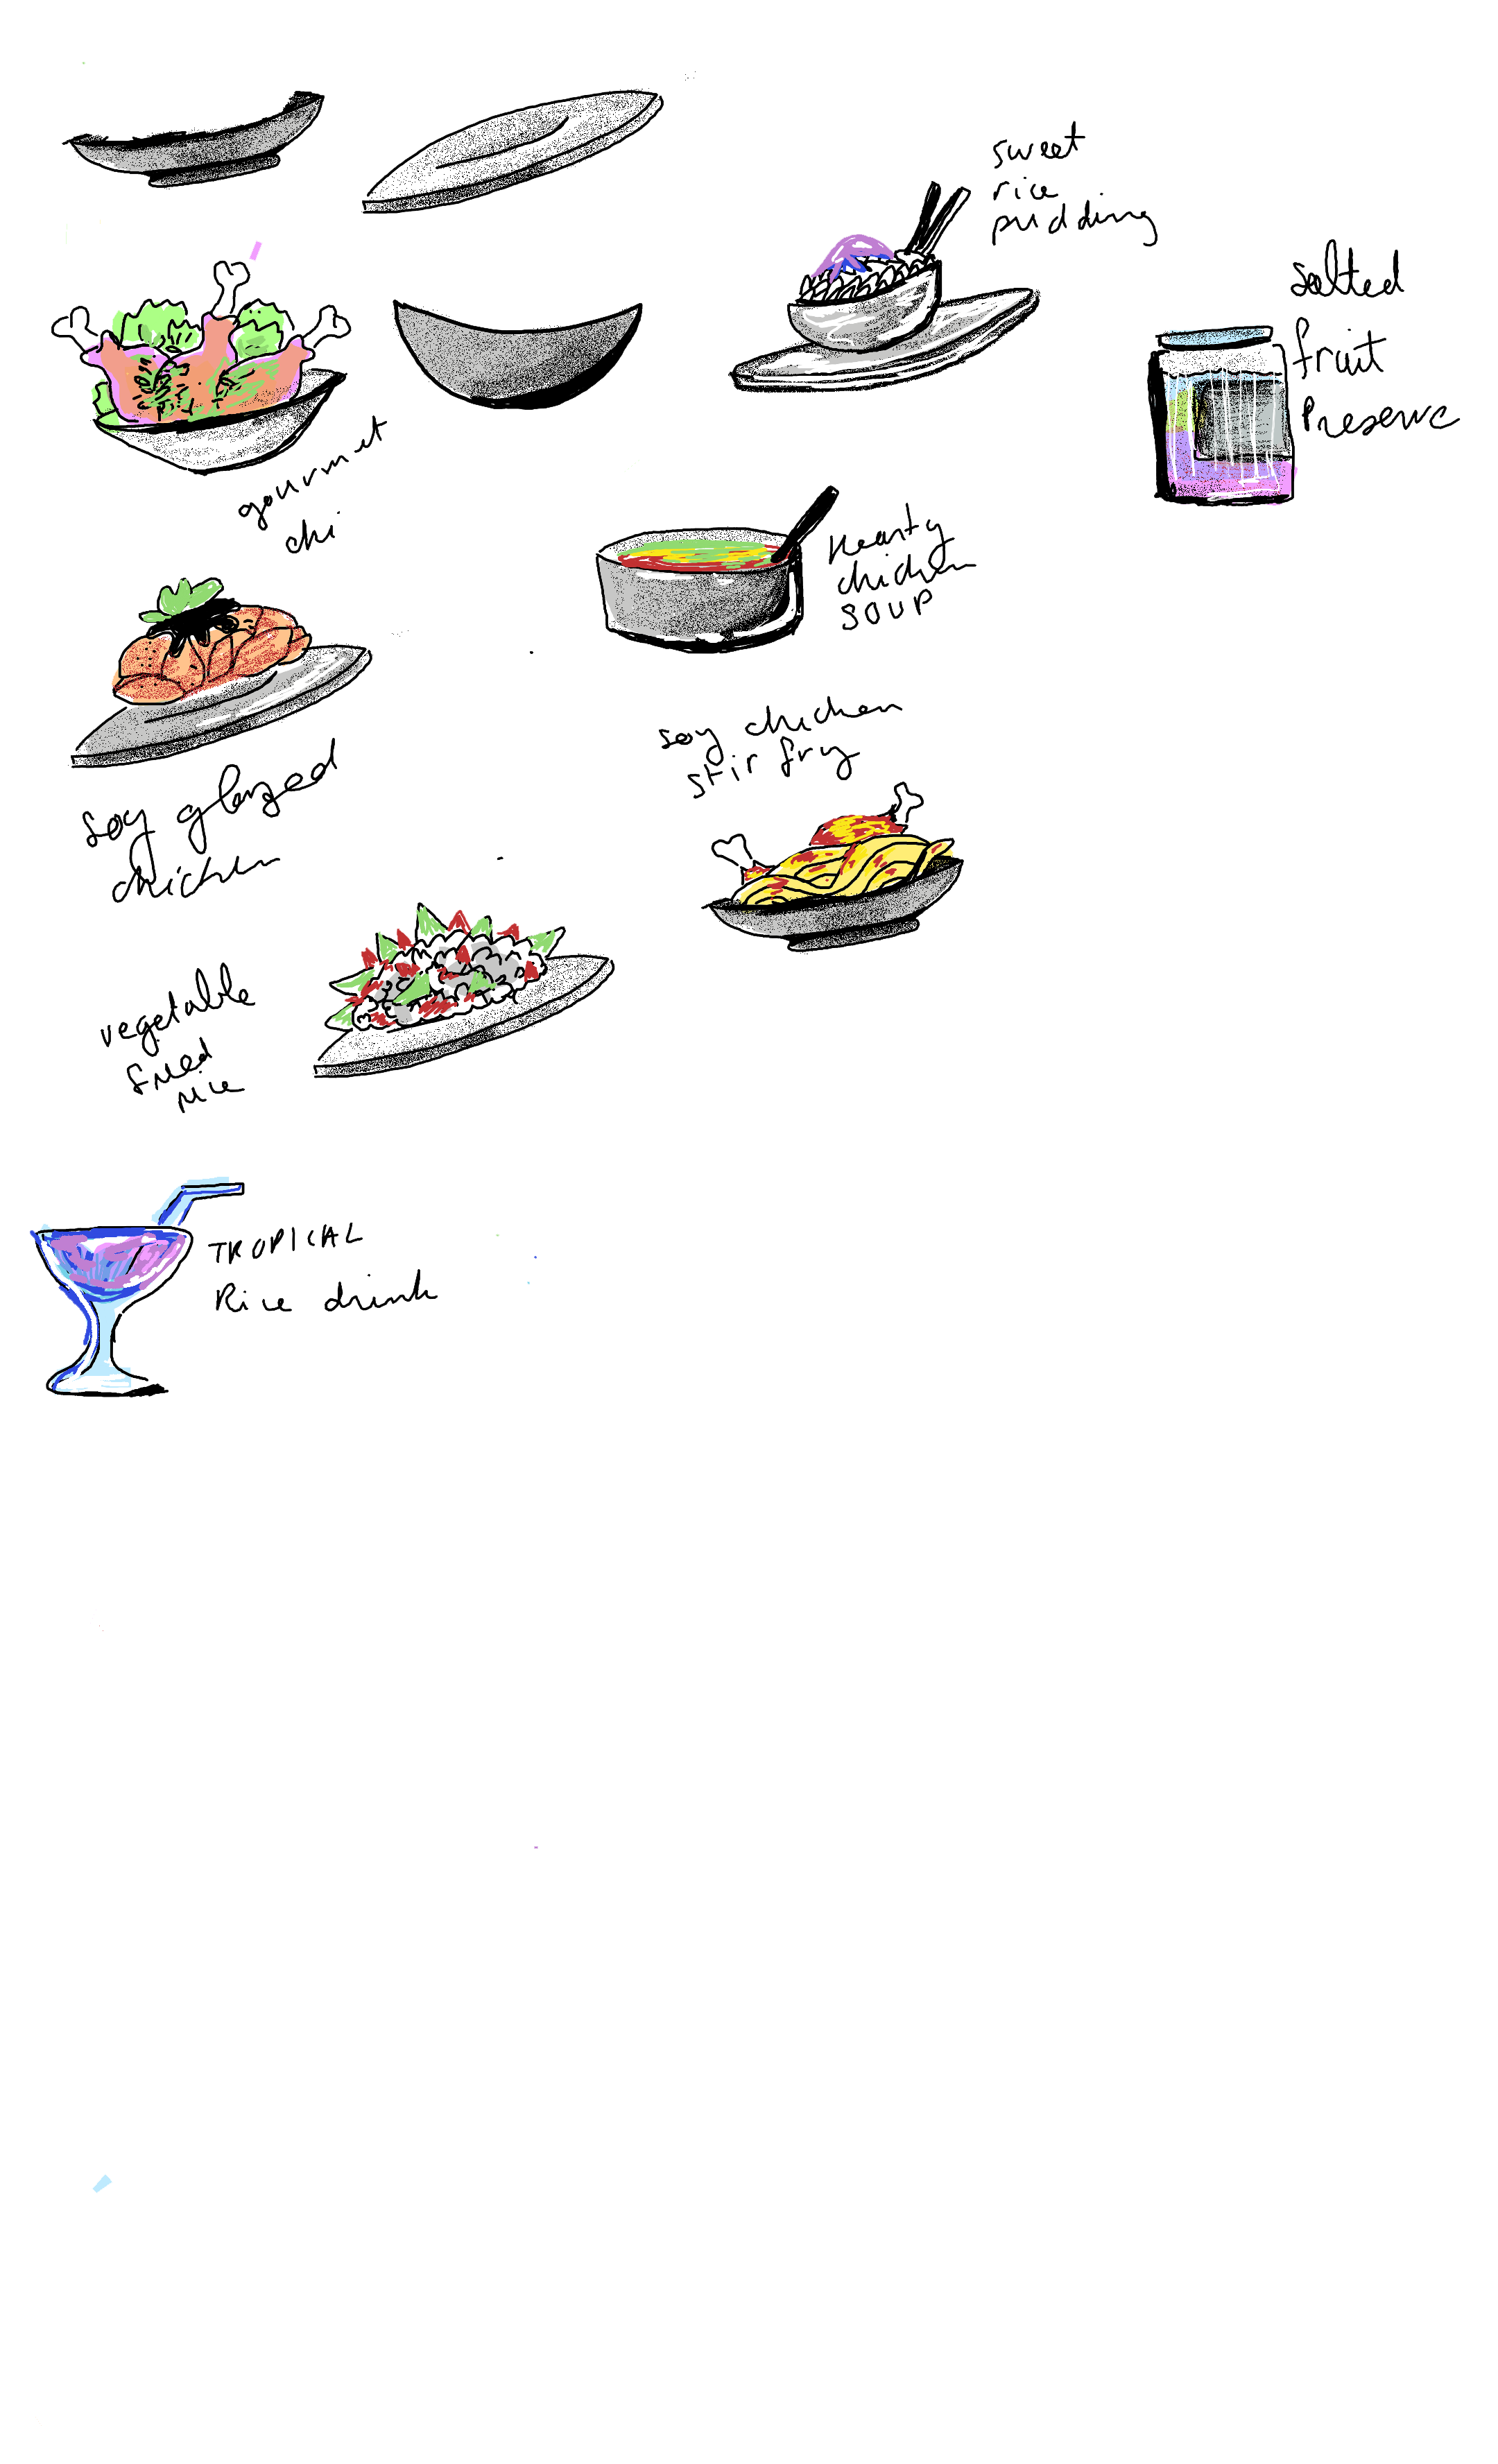 sweet
rice
pudding
salted
fruit
Preserve
gourmet
chi
Hearty
chicken
SOUP
soy chicken
stir fry
soy glazed
chicken
vegetable
fried
rice
TROPICAL
Rice drink